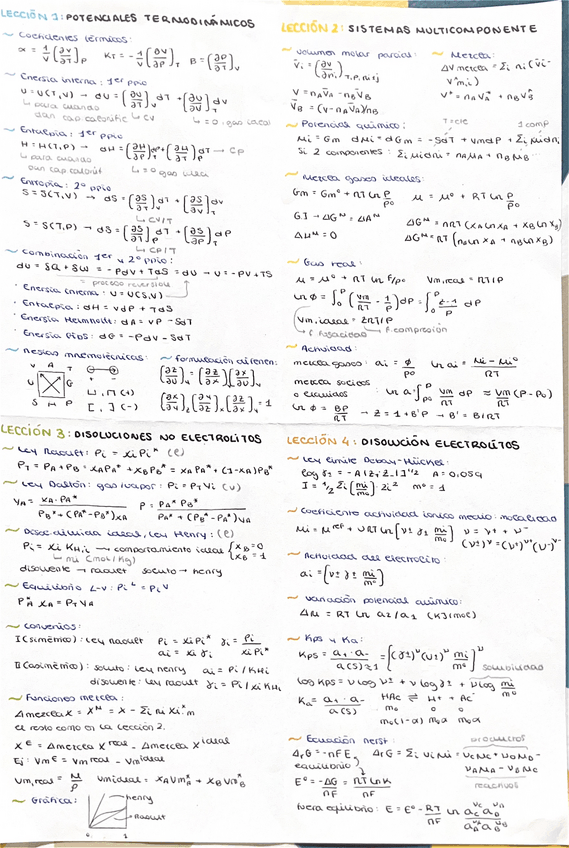 LECCIÓN 1: POTENCIALES TERMODINÁMICOS
~ Coeficientes térmicos:
α = 1/V (∂V/∂T)P   KT = -1/V (∂V/∂P)T   β = (∂P/∂T)V
~ Energía interna: 1er ppio
U = U(T,V) → dU = (∂U/∂T)V dT + (∂U/∂V)T dV
↳ para cuando
dan cap calorífic ↳ CV
↳ = 0, gas ideal
~ Entalpía: 1er ppio
H = H(T,P) → dH = (∂H/∂T)P dT + (∂H/∂P)T dP → Cp
↳ para cuando
dan cap calorif
~ Entropía: 2º ppio
S = S(T,V) → dS = (∂S/∂T)V dT + (∂S/∂V)T dV
↳ CV/T
S = S(T,P) → dS = (∂S/∂T)P dT + (∂S/∂P)T dP
↳ CP/T
~ Combinación 1er y 2º ppio:
dU = δQ + δW = -PdV + TdS = dU → U = -PV + TS
= proceso reversible
· Energía interna: U = U(S,V)
· Entalpía: dH = VdP + TdS
· Energía Helmholt: dA = VP - SdT
· Energía Gibs: dG = -PdV - SdT
~ Reglas mnemotécnicas:
V A T
U G
S H P
~ Formulación diferen:
LECCIÓN 2: SISTEMAS MULTICOMPONENTE
~ Volumen molar parcial:
V̄i = (∂V/∂ni)T,P,ni≠j
~ Mezcla:
ΔV mezcla = Σi ni(V̄i - V*m,i)
~ Potencial químico:
T = cte   1 comp
μi = Gm   dμi = dGm = -SdT + VmdP + Σi μidni
Si 2 componentes: Σi μidni = nAμA + nBμB
~ Mezcla gases ideales:
Gm = Gm° + RT ln P/P0   μ = μ° + RT ln P/P0
ΔHᴹ = 0
~ Gas real:
μ = μ° + RT ln F/P0   Vm,real = RT/P
ln φ = ∫0P (Vm/RT - 1/P) dP = ∫0P (z-1)/P dP
Vm,ideal = ZRT/P
↳ F. fugacidad   ↳ F. compresión
~ Actividad:
mezcla gases: ai = φ/P0   ln ai = (μi - μi°)/RT
mezcla sólidos
o líquidos   ln a = ∫P0P Vm/RT dP ≈ Vm/RT (P - P0)
ln φ = BP/RT → Z = 1 + B'P → B' = B/RT
LECCIÓN 3: DISOLUCIONES NO ELECTROLITOS
~ Ley Raoult: Pi = xiPi* (l)
PT = PA + PB = xAPA* + xBPB* = xAPA* + (1-xA)PB*
~ Ley Dalton: gas/vapor: Pi = PTYi (v)
YA = xA·PA* / (PB* + (PA* - PB*)xA)   P = PA* PB* / (PA* + (PB* - PA*)YA)
~ Disol. diluida ideal, Ley Henry: (l)
Pi = xi KH,i → comportamiento ideal { xB = 0 xB = 1
↳ mi (mol/Kg)
disolvente → raoult   soluto → henry
~ Equilibrio L-V: Pi L = Pi V
P*A xA = PTYA
~ Convenios:
I (simétrico): Ley raoult   Pi = xiPi*   γi = Pi/xiPi*
ai = xi γi
II (asimétrico): soluto: Ley henry   ai = Pi/KHi
disolvente: Ley raoult   γi = Pi/xi KHi
~ Funciones mezcla:
Δmezcla X = Xᴹ = X - Σi ni Xi*m
el resto como en la lección 2.
Xᴱ = Δmezcla X real - Δmezcla X ideal
Ej: Vmᴱ = Vm real - Vm ideal
Vm,real = M/ρ   Vmideal = xAVmA* + xBVmB*
~ Gráfica:
Henry
Raoult
LECCIÓN 4: DISOLUCIÓN ELECTROLITOS
~ Ley límite Debay-Hückel:
log γ± = -A|Z+ Z-| I^1/2   A = 0,059
I = 1/2 Σi (mi/m°) zi²   m° = 1
~ Coeficiente actividad iónico medio: molalidad
μi = μ ref + νRT ln [ν± γ± mi/m°]   ν = ν+ + ν-
(ν±)^ν = (ν+)^ν+ (ν-)^ν-
~ Actividad del electrolito:
ai = (ν± γ± mi/m°)
~ Variación potencial químico:
Δμ = RT ln a2/a1 (KJ/mol)
~ Kps y Ka:
Kps = a+·a- / a(s)≈1 = [(γ±)^ν (ν±)^ν mi/m°]^ν
solubilidad
log Kps = ν log ν± + ν log γ± + ν log mi/m°
Ka = a+·a- / a(s)   HAc ⇌ H+ + Ac-
m0   0   0
m0(1-α)   m0α   m0α
~ Ecuación nerst:
productos
ΔrG = -nFE   ΔrG = Σi νi μi = νCμC + νDμD - νAμA - νBμB
equilibrio
reactivos
E° = -ΔG/nF = RT ln K/nF
fuera equilibrio: E = E° - RT/nF ln aC^νC aD^νD / aA^νA aB^νB